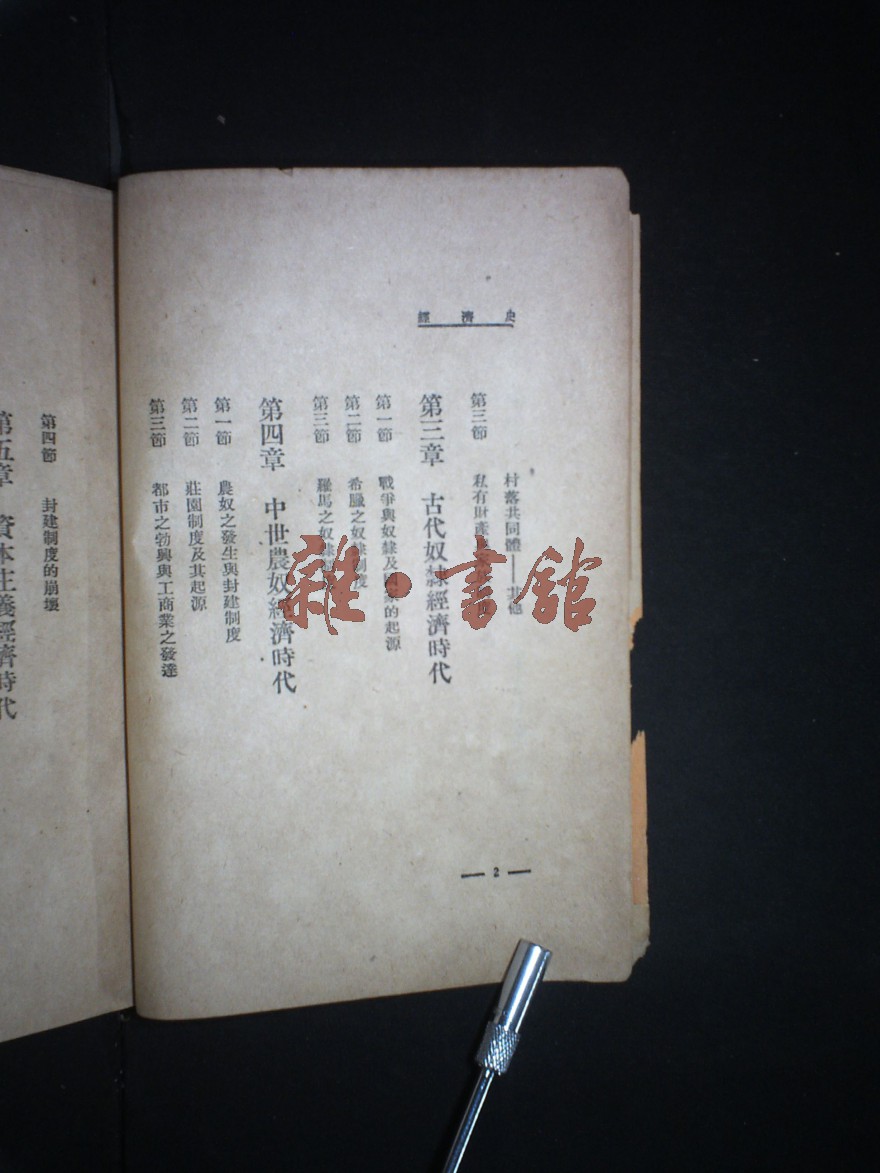 經濟史
村落共同體——其他
第三節 私有財產
第三章 古代奴隸經濟時代
第一節 戰爭與奴隸及國家的起源
第二節 希臘之奴隸制度
第三節 羅馬之奴隸
第四章 中世農奴經濟時代
第一節 農奴之發生與封建制度
第二節 莊園制度及其起源
第三節 都市之勃興與工商業之發達
— 2 —
第四節 封建制度的崩壞
第五章 資本主義經濟時代
雜·書館